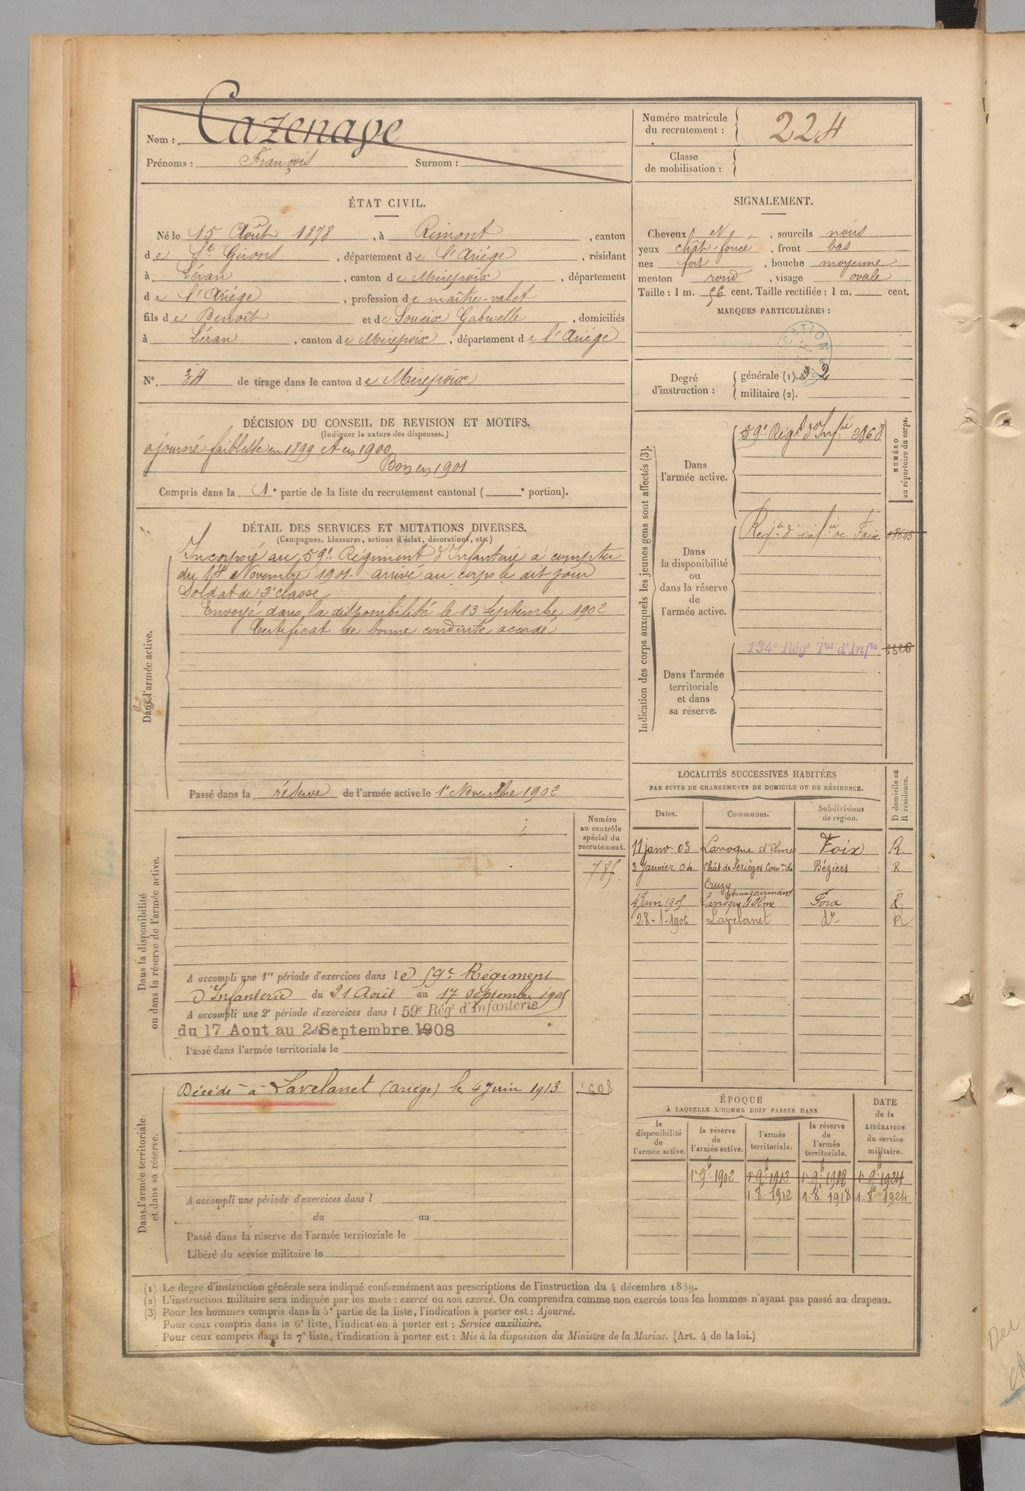 Nom : Cazenave
Prénoms : François Surnom :
Numéro matricule
du recrutement : 224
Classe
de mobilisation :
ÉTAT CIVIL.
Né le 15 Août 1878, à Rimont, canton
de St Girons, département de l'Ariège, résidant
à Léran, canton de Mirepoix, département
de l'Ariège, profession de maître-valet
fils de Benoît et de Soucix Gabrielle, domiciliés
à Léran, canton de Mirepoix, département de l'Ariège
N° 34 de tirage dans le canton de Mirepoix
SIGNALEMENT.
Cheveux N, sourcils noirs
yeux chât-foncé, front bas
nez fort, bouche moyenne
menton rond, visage ovale
Taille : 1 m. 56 cent. Taille rectifiée : 1 m. cent.
MARQUES PARTICULIÈRES :
Degré
d'instruction :
générale (1). 2
militaire (2).
DÉCISION DU CONSEIL DE REVISION ET MOTIFS.
(Indiquer la nature des dispenses.)
ajourné faiblesse en 1899 et en 1900
Bon en 1901
Compris dans la 1e partie de la liste du recrutement cantonal ( e portion).
DÉTAIL DES SERVICES ET MUTATIONS DIVERSES.
(Campagnes, blessures, actions d'éclat, décorations, etc.)
Dans l'armée active.
Incorporé au 59e Régiment d'Infanterie à compter
du 14 Novembre 1901 arrivé au corps le dit jour
Soldat de 2e classe
Envoyé dans la disponibilité le 13 Septembre 1902
Certificat de bonne conduite accordé
Passé dans la réserve de l'armée active le 1er Novembre 1902
Indication des corps auxquels les jeunes gens sont affectés (3).
NUMÉRO
au répertoire du corps.
Dans
l'armée active.
59e Régt d'Infie 2868
Dans
la disponibilité
ou
dans la réserve
de
l'armée active.
Regt d'infie de Foix
Dans l'armée
territoriale
et dans
sa réserve.
134e Régt Tal d'Infie
LOCALITÉS SUCCESSIVES HABITÉES
PAR SUITE DE CHANGEMENTS DE DOMICILE OU DE RÉSIDENCE.
D domicile ou
R résidence.
Dates. Communes. Subdivisions
de région.
11 janv. 03 Laroque d'Olmes Foix R
3 Janvier 04 Chât de Sérièges Comne de Béziers R
Cruzy
4 Juin 1905 Laroque d'Olme Foix R
28-1-1906 Lavelanet do R
Dans la disponibilité
ou dans la réserve de l'armée active.
Numéro
au contrôle
spécial du
recrutement.
785
A accompli une 1re période d'exercices dans le 59e Régiment
d'Infanterie du 21 Août au 17 Septembre 1905
A accompli une 2e période d'exercices dans l 59e Rég' d'Infanterie
du 17 Aout au 2 Septembre 1908
Passé dans l'armée territoriale le
Dans l'armée territoriale
et dans sa réserve.
Décédé à Lavelanet (Ariège) le 4 Juin 1913
A accompli une période d'exercices dans l
du au
Passé dans la réserve de l'armée territoriale le
Libéré du service militaire le
ÉPOQUE
À LAQUELLE L'HOMME DOIT PASSER DANS
DATE
de la
LIBÉRATION
du service
militaire.
la
disponibilité
de
l'armée active.
la réserve
de
l'armée active.
l'armée
territoriale.
la réserve
de
l'armée
territoriale.
1r 9b 1902 1r 9b 1912 1r 9b 1918 1r 9b 1924
1.8.1912 1.8.1918 1.8.1924
(1) Le degré d'instruction générale sera indiqué conformément aux prescriptions de l'instruction du 4 décembre 1889.
(2) L'instruction militaire sera indiquée par les mots : exercé ou non exercé. On comprendra comme non exercés tous les hommes n'ayant pas passé au drapeau.
(3) Pour les hommes compris dans la 5e partie de la liste, l'indication à porter est : Ajourné.
Pour ceux compris dans la 6e liste, l'indication à porter est : Service auxiliaire.
Pour ceux compris dans la 7e liste, l'indication à porter est : Mis à la disposition du Ministre de la Marine. (Art. 4 de la loi.)